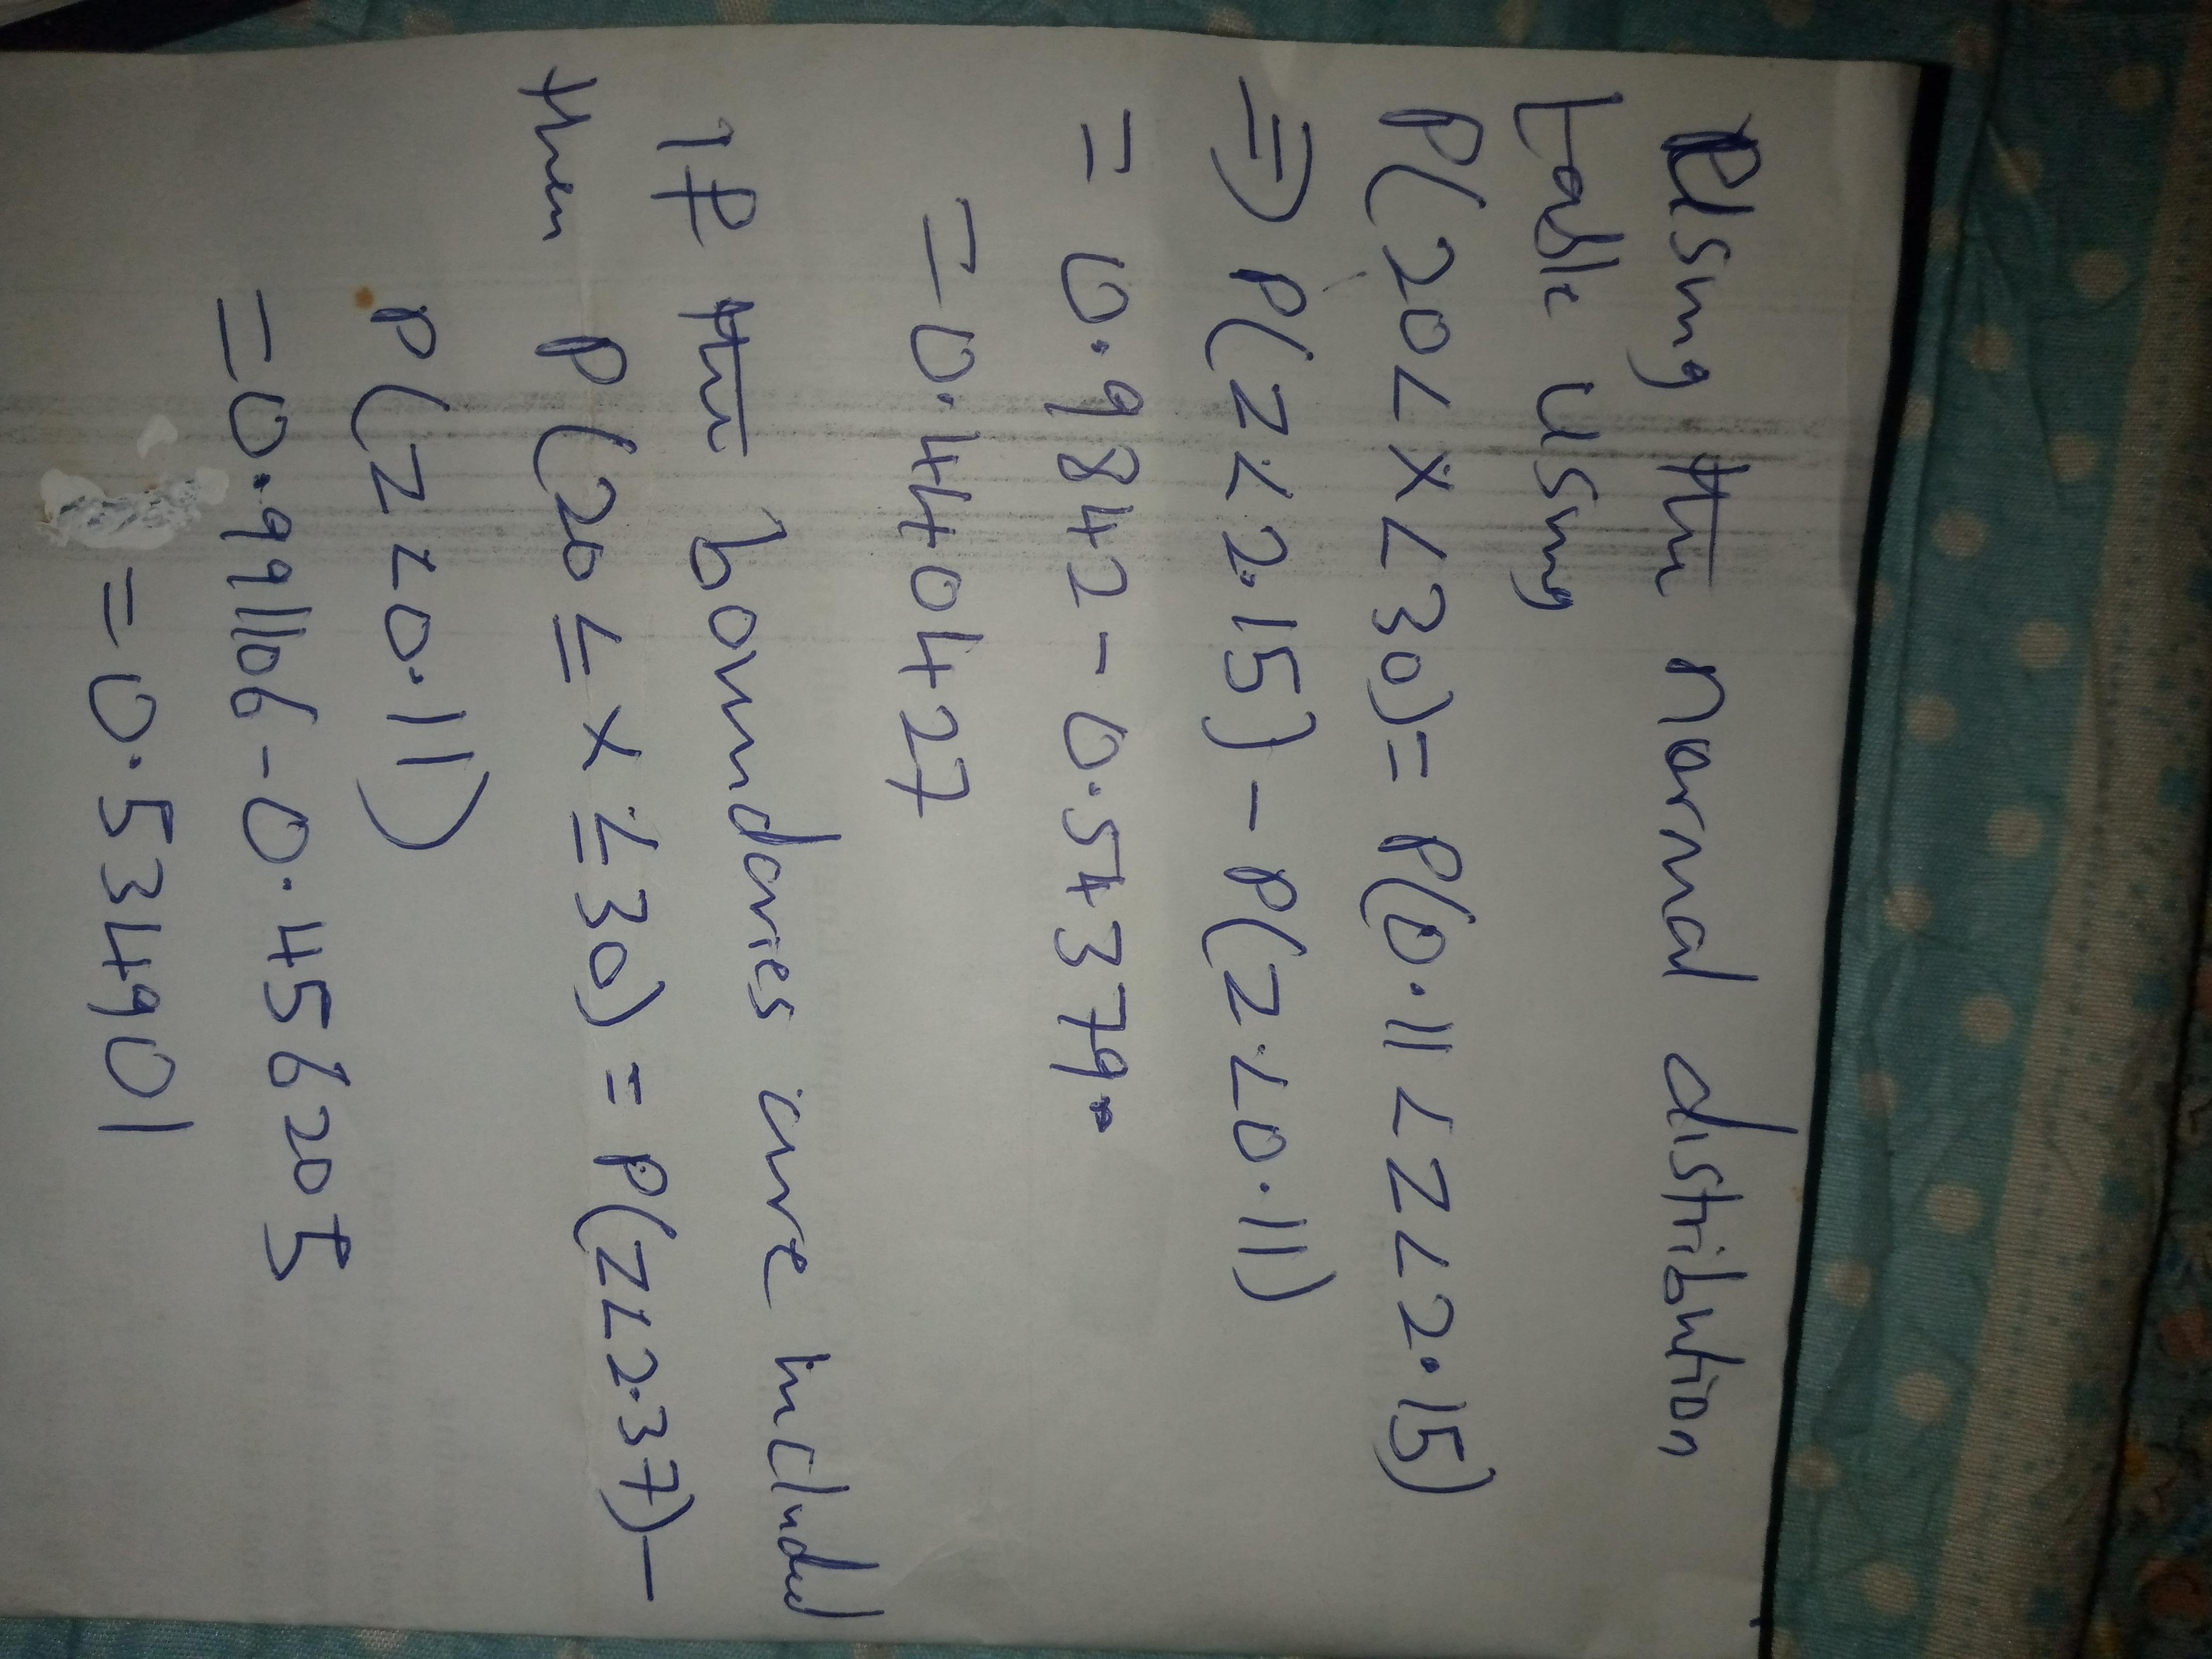 Using the normal distribution
table using
P(20<x<30)= P(0.11<Z<2.15)
=) P(Z<2.15)-P(Z<0.11)
= 0.9842-0.54379
= 0.440427
If the boundaries are included
then P(20≤x≤30)= P(Z<2.37)-
P(Z<0.11)
=0.991106-0.456205
=0.534901